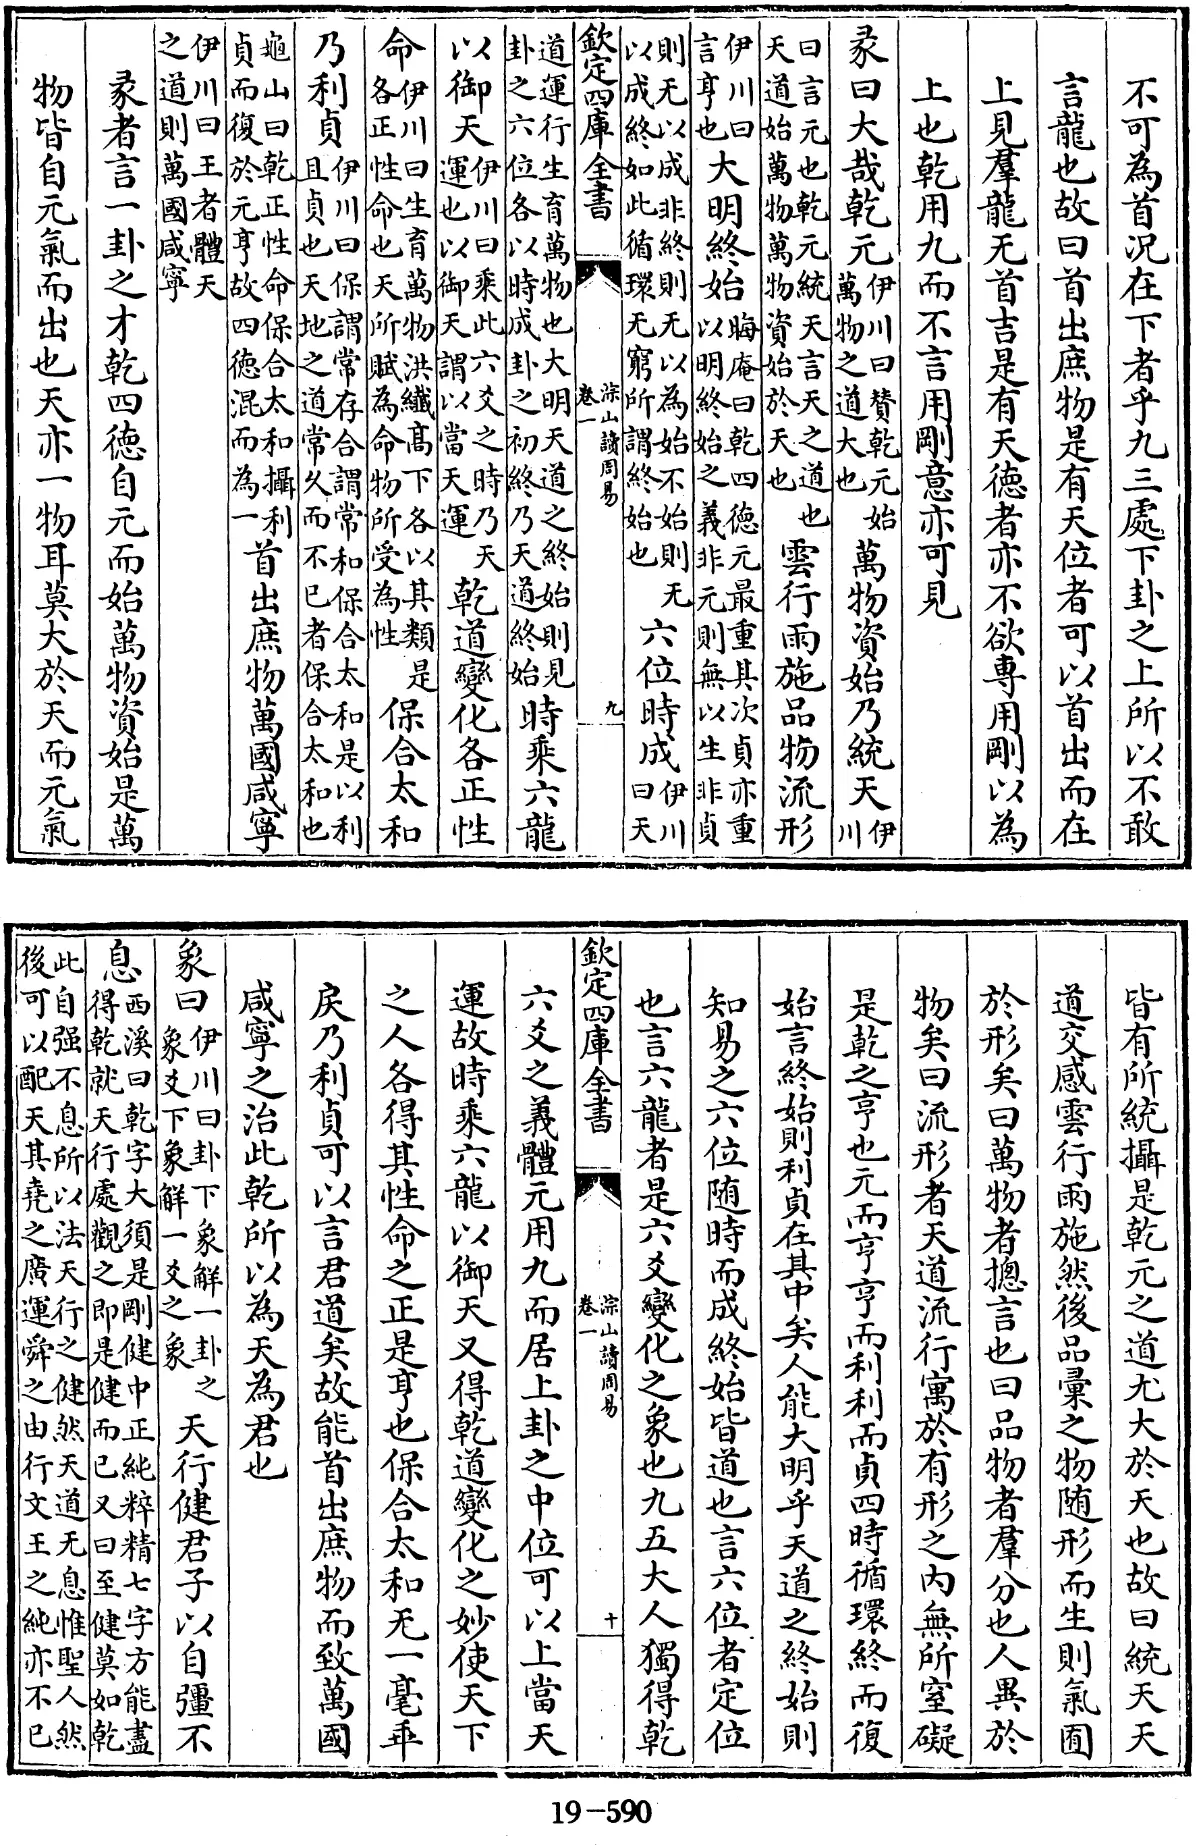 不可為首況在下者乎九三處下卦之上所以不敢
言龍也故曰首出庶物是有天位者可以首出而在
上見羣龍无首吉是有天德者亦不欲專用剛以為
上也乾用九而不言用剛意亦可見
彖曰大哉乾元伊川曰賛乾元始萬物之道大也萬物資始乃統天伊川
曰言元也乾元統天言天之道也天道始萬物萬物資始於天也雲行雨施品物流形
伊川曰言亨也大明終始晦庵曰乾四德元最重其次貞亦重以明終始之義非元則無以生非貞
則无以成非終則无以為始不始則无以成終如此循環无窮所謂終始也六位時成伊川曰天
欽定四庫全書
淙山讀周易
卷一
九
道運行生育萬物也大明天道之終始則見卦之六位各以時成卦之初終乃天道終始時乘六龍
以御天伊川曰乘此六爻之時乃天運也以御天謂以當天運乾道變化各正性
命伊川曰生育萬物洪纖高下各以其類是各正性命也天所賦為命物所受為性保合太和
乃利貞伊川曰保謂常存合謂常和保合太和是以利且貞也天地之道常久而不已者保合太和也
龜山曰乾正性命保合太和攝利貞而復於元亨故四德混而為一首出庶物萬國咸寧
伊川曰王者體天之道則萬國咸寧
彖者言一卦之才乾四德自元而始萬物資始是萬
物皆自元氣而出也天亦一物耳莫大於天而元氣
皆有所統攝是乾元之道尤大於天也故曰統天天
道交感雲行雨施然後品彙之物随形而生則氣囿
於形矣曰萬物者摠言也曰品物者羣分也人異於
物矣曰流形者天道流行寓於有形之内無所窒礙
是乾之亨也元而亨亨而利利而貞四時循環終而復
始言終始則利貞在其中矣人能大明乎天道之終始則
知易之六位随時而成終始皆道也言六位者定位
也言六龍者是六爻變化之象也九五大人獨得乾
欽定四庫全書
淙山讀周易
卷一
十
六爻之義體元用九而居上卦之中位可以上當天
運故時乘六龍以御天又得乾道變化之妙使天下
之人各得其性命之正是亨也保合太和无一毫乖
戾乃利貞可以言君道矣故能首出庶物而致萬國
咸寧之治此乾所以為天為君也
象曰伊川曰卦下象解一卦之象爻下象解一爻之象天行健君子以自彊不
息西溪曰乾字大須是剛健中正純粹精七字方能盡得乾就天行處觀之即是健而已又曰至健莫如乾
此自强不息所以法天行之健然天道无息惟聖人然後可以配天其堯之廣運舜之由行文王之純亦不已
19-590